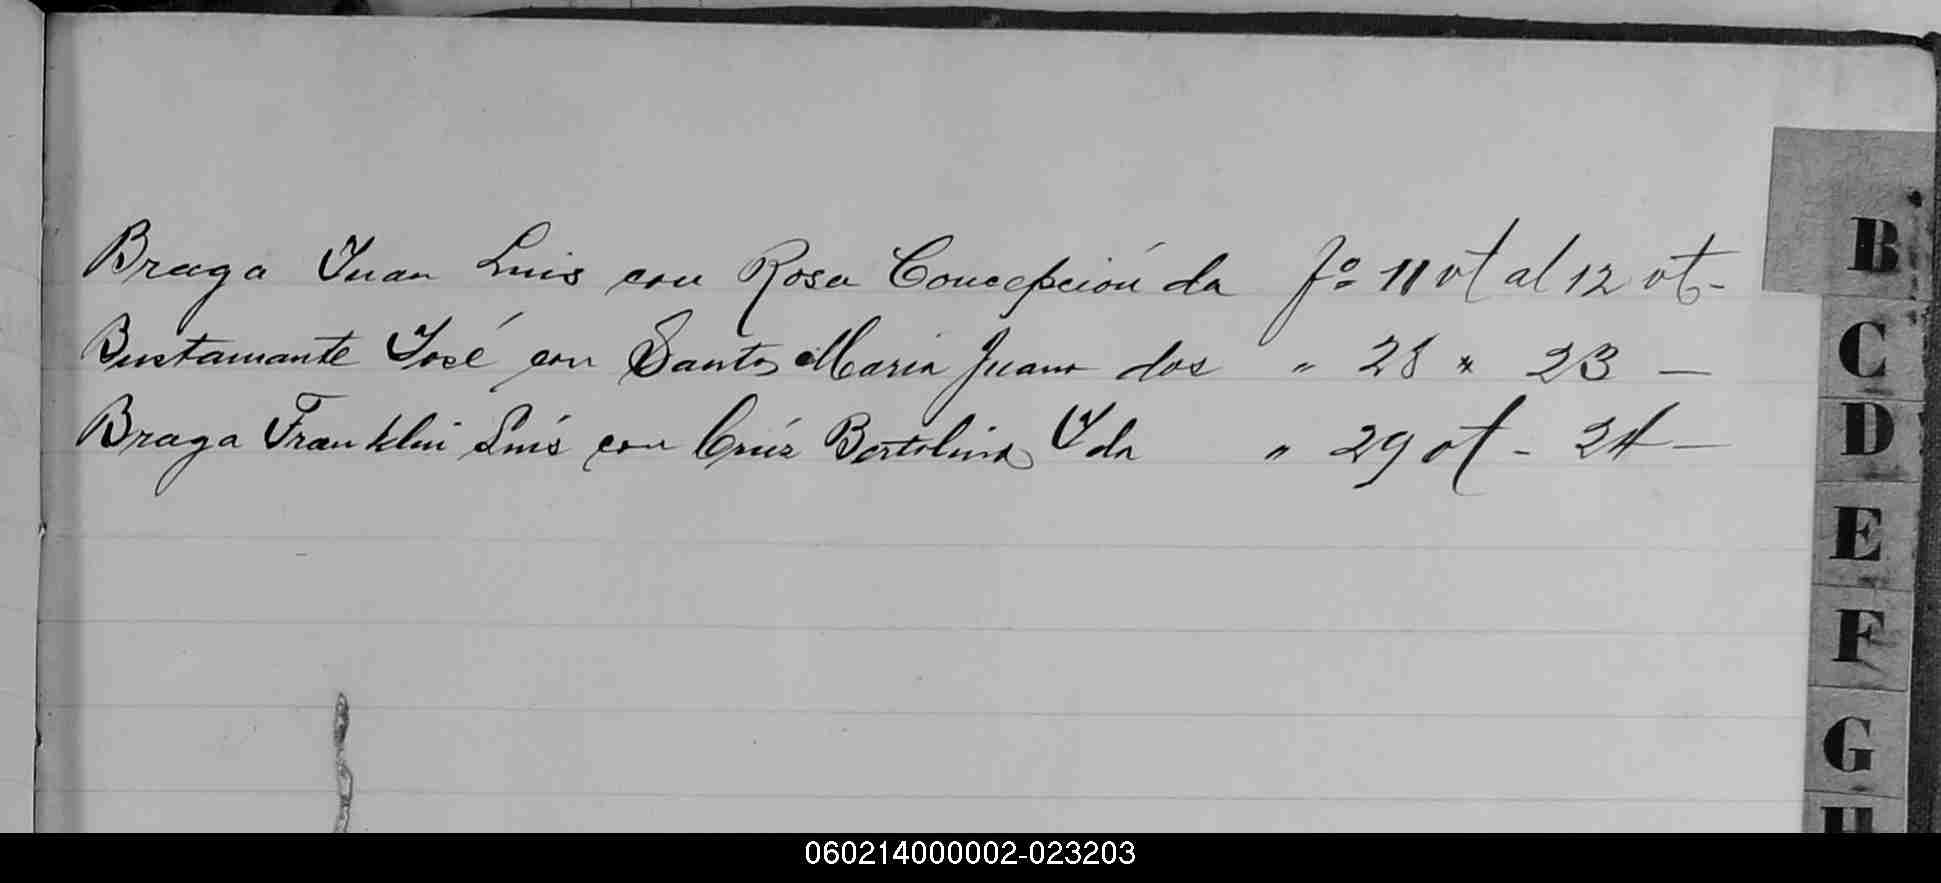 Braga Juan Luis con Rosa Concepción da fº 11 vt al 12 vt -
Bustamante José con Santos Maria Juana dos " 28 " 23 —
Braga Franklin Luis con Crúz Bertolina Yda " 29 vt - 24 —
B
C
D
E
F
G
H
060214000002-023203